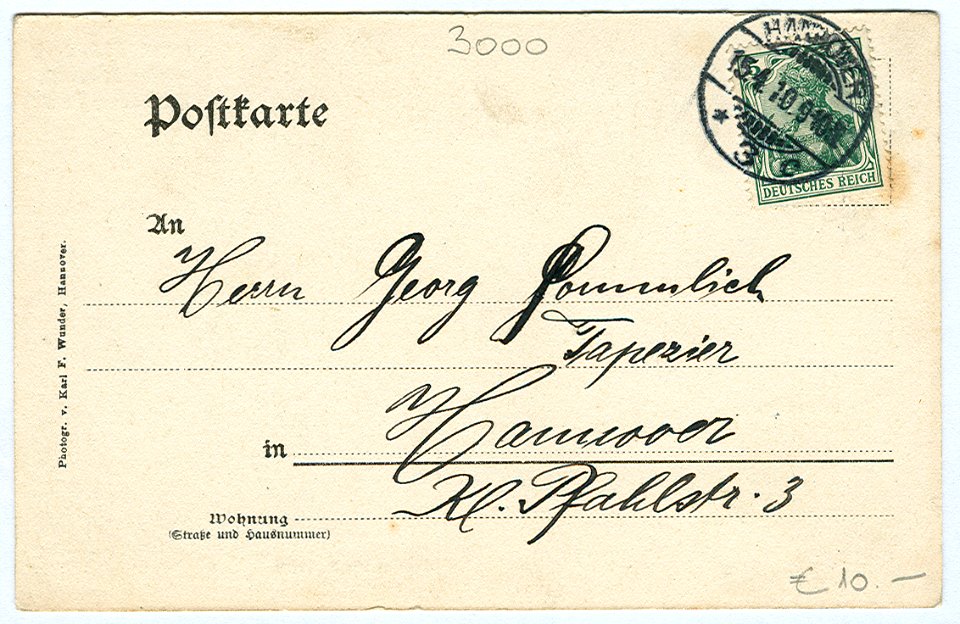 3000
HANNOVER
15.4.10.9-10V
* 3 c
5
DEUTSCHES REICH
Poſtkarte
An
Herrn Georg Pommlich
Tapezier
in Hannover
Kl. Pfahlstr. 3
Wohnung
(Straße und Hausnummer)
Photogr. v. Karl F. Wunder, Hannover.
€ 10.–